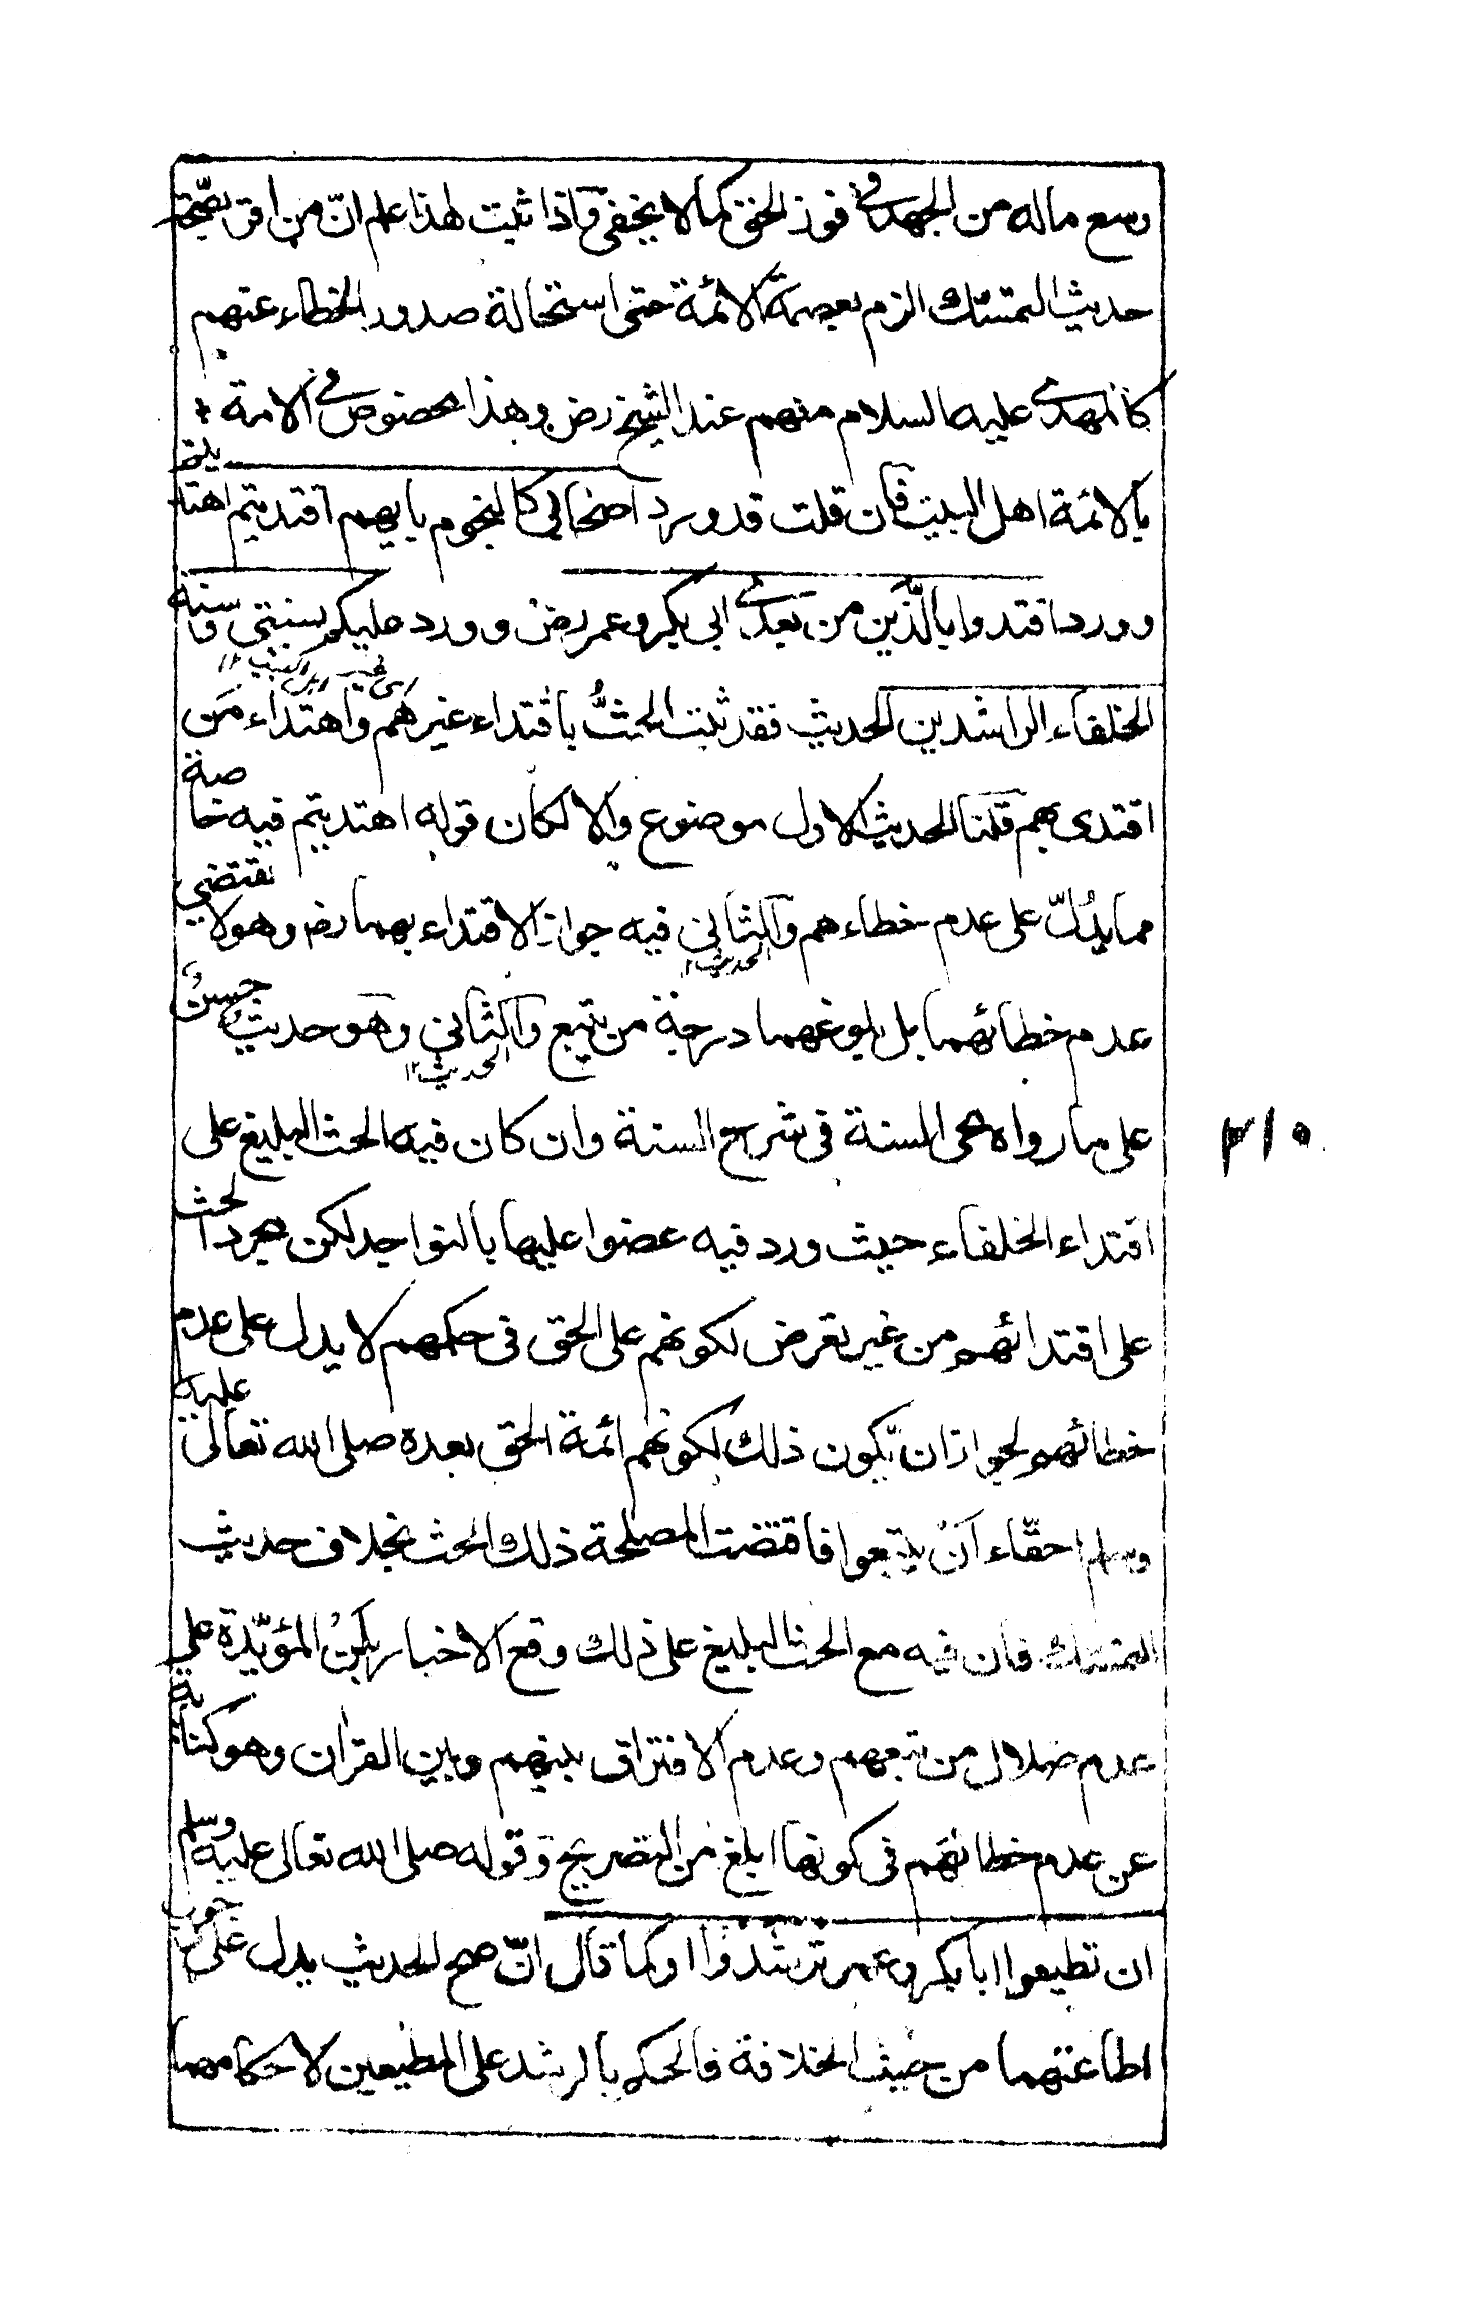 وسع ماله من الجهد فى فوز الحق كما لا يخفى واذا ثبت لهذا علم انّ من اقر بصّحة
حديث التمسّك الزم بعصمة الائمة حتى استحالة صدور الخطاء عنهم
كالمهدى عليه السلام منهم عند الشيخ رض وهذا مخصوص فى الامة
بالائمة اهل البيت فان قلت قد ورد اصحابي كالنجوم بايهم اقتديتم اهتديتم
وورد اقتدوا بالّذين من بعدى ابي بكر وعمر رض وورد عليكم بسنتي وسنة
الخلفاء الراشدين الحديث فقد ثبت الحثُّ باقتداء غيرهم واهتداء من
اى غير اهل البيت ١٢
اقتدى بهم قلنا الحديث الاول موضوع والا لكان قوله اهتديتم فيه خاصة
مما يدُلّ على عدم خطاءهم والثاني فيه جواز الاقتداء بهما رض وهو لا يقتضي
الحديث ١٢
عدم خطائهما بل بلوغهما درجة من يتبع والثاني وهو حديث حسنٌ
الحديث ١٢
على ما رواه محى السنة فى شرح السنة وان كان فيه الحث البليغ على
٢١٥
اقتداء الخلفاء حيث ورد فيه عضوا عليها بالنواجد لكن مجرد الحث
على اقتدائهم من غير تعرض لكونهم على الحق فى حكمهم لا يدل على عدم
خطائهم لجواز ان يكون ذلك لكونهم ائمة الحق بعده صلى الله تعالى عليه
وسلم احقّاء انْ يتبعوا فاقتضت المصلحة ذلك الحث بخلاف حديث
التمسك فان فيه مع الحث البليغ على ذلك وقع الاخبار بكن المؤيّدة على
عدم ضلال من تبعهم وعدم الافتراق بينهم وبين القران وهو كناية
عن عدم خطائهم فى كونها ابلغ من التصريح وقوله صلى الله تعالى عليه وسلم
ان تطيعوا ابا بكر وعمر ترشدوا او كما قال انّ صح الحديث يدل على
اطاعتهما من حيث الخلافة فالحكم بالرشد على المطيعين لاحكامهما